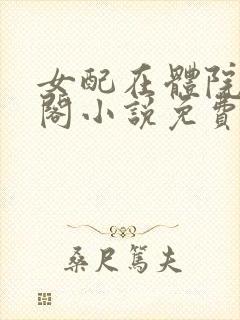 女配在體院
閣小說免費
桑尺篤夫